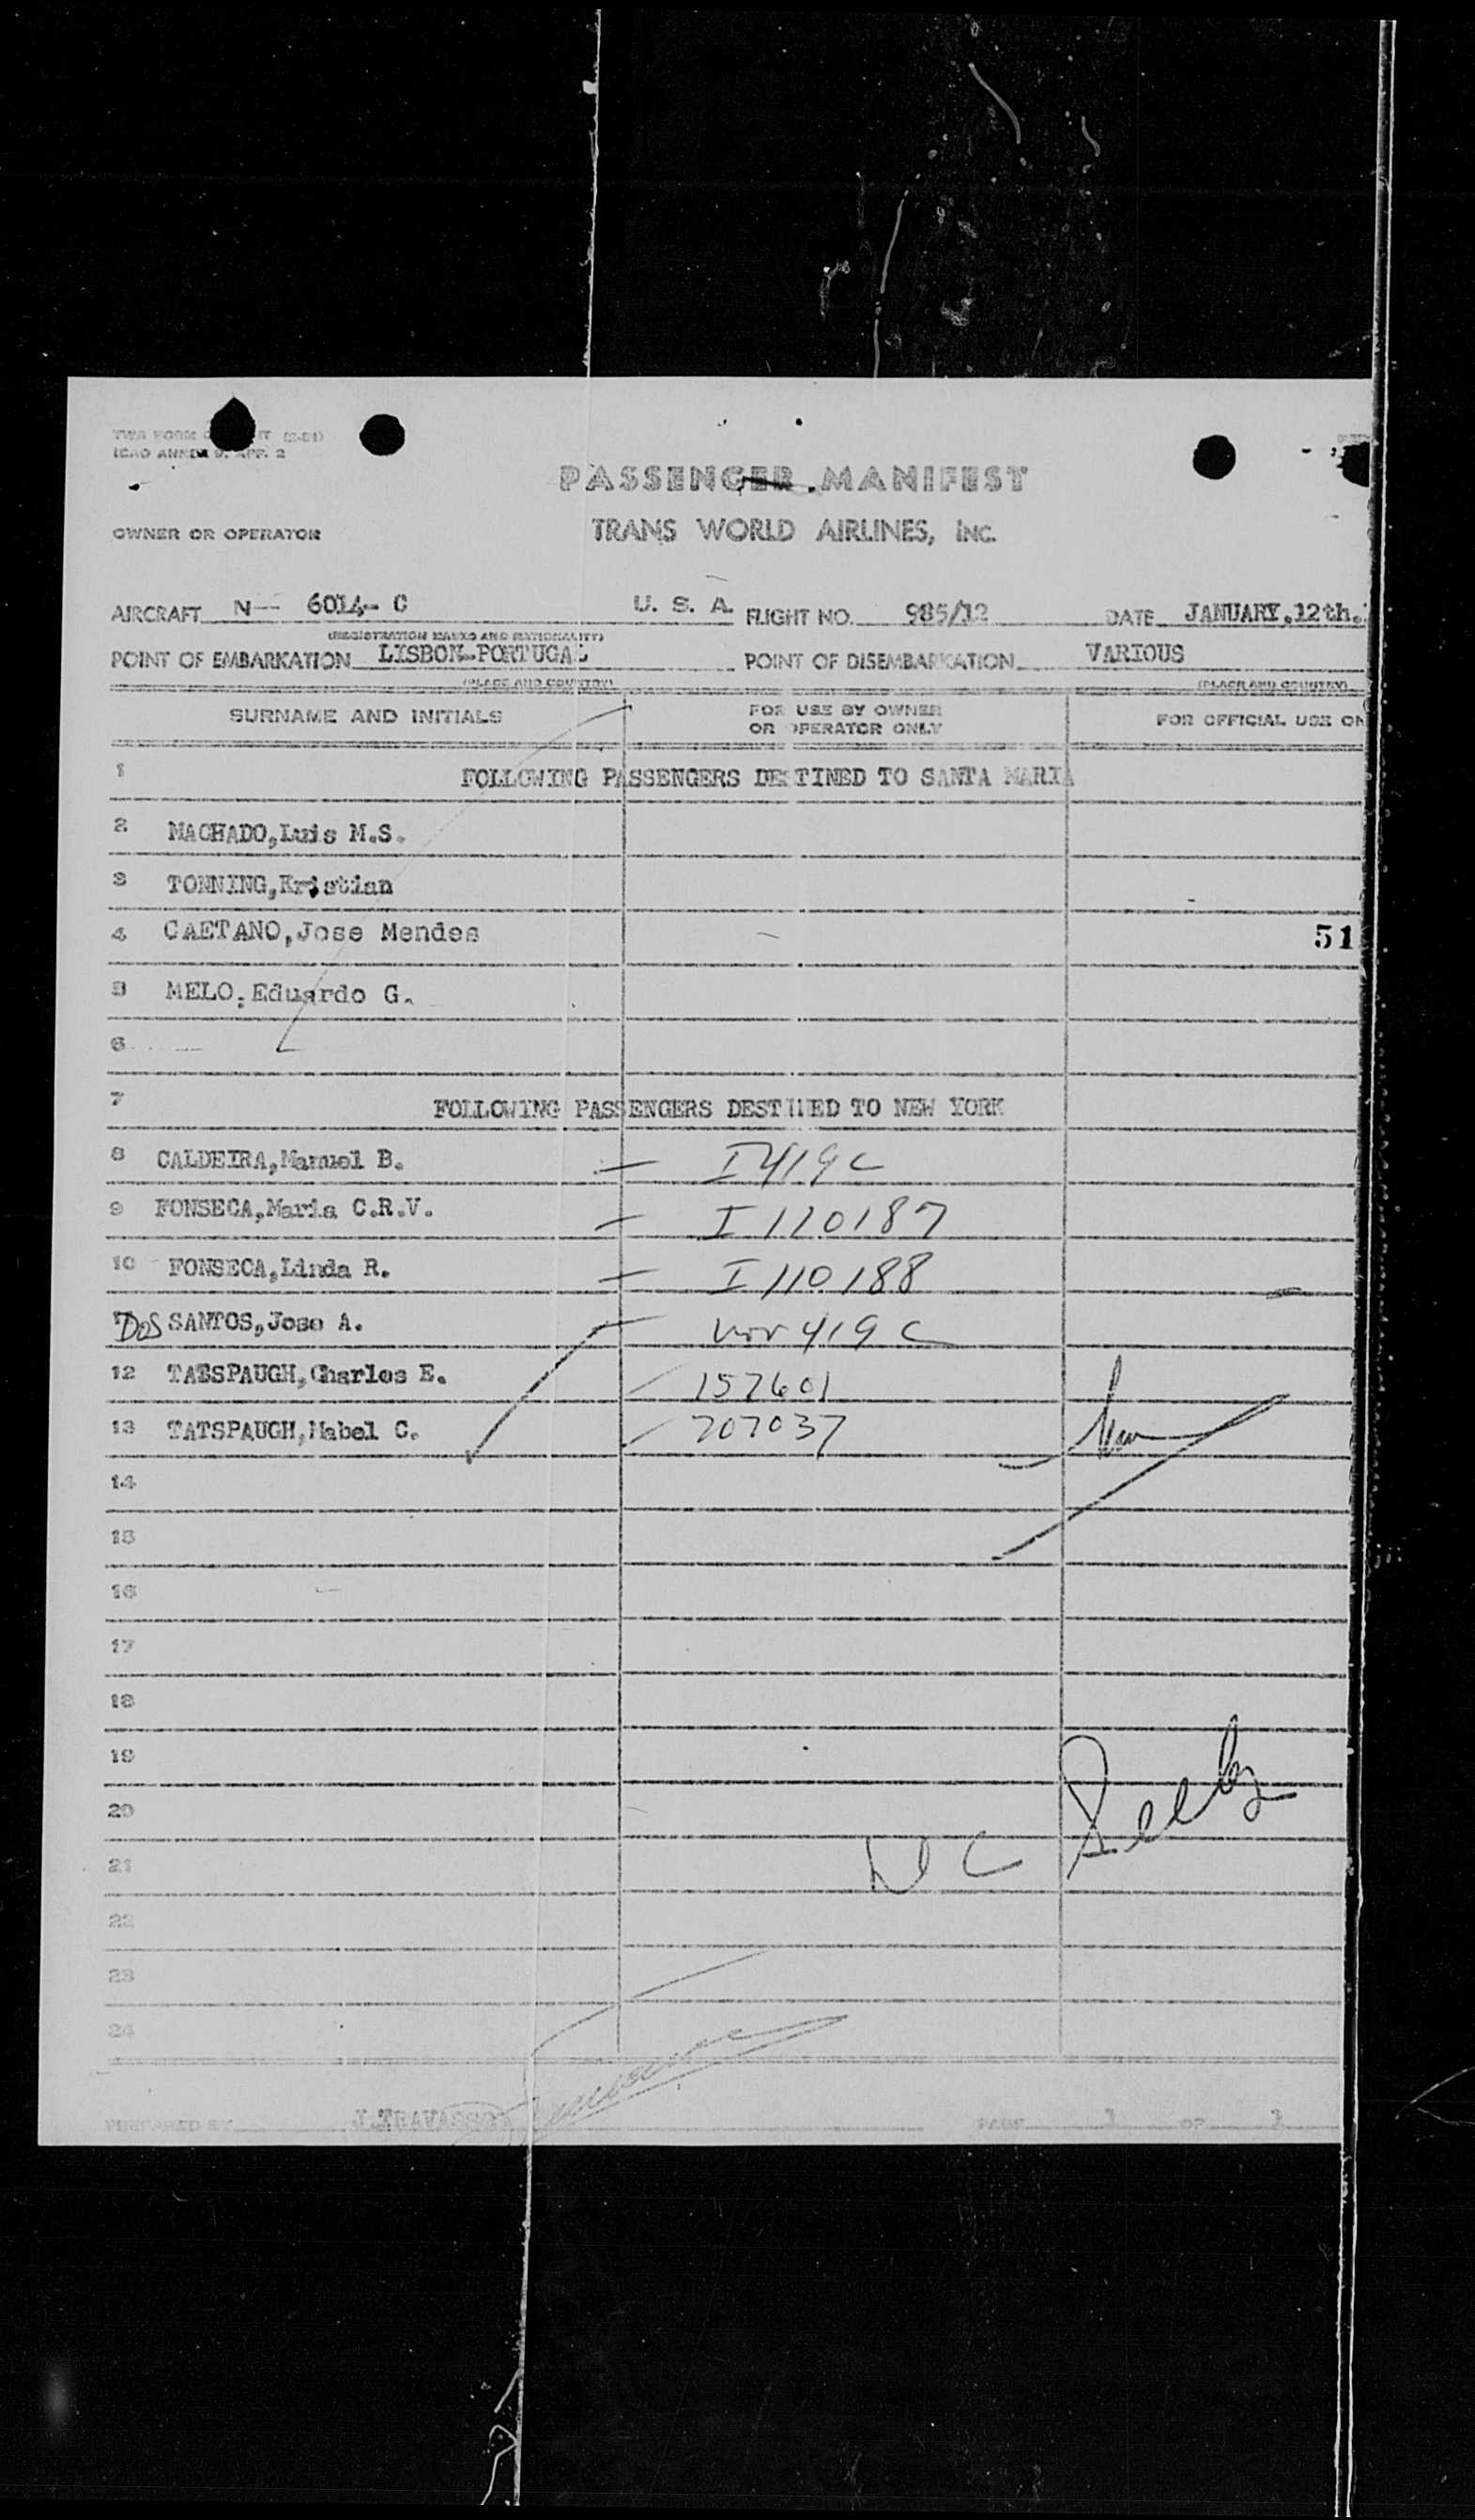 ICAO ANNEX 9, APP. 2
PASSENGER MANIFEST
OWNER OR OPERATOR
TRANS WORLD AIRLINES, INC.
AIRCRAFT N- 6014- C U. S. A. FLIGHT NO. 985/12 DATE JANUARY,12th.
(REGISTRATION MARKS AND NATIONALITY)
POINT OF EMBARKATION LISBON-PORTUGAL POINT OF DISEMBARKATION VARIOUS
(PLACE AND COUNTRY) (PLACE AND COUNTRY)
SURNAME AND INITIALS FOR USE BY OWNER OR OPERATOR ONLY FOR OFFICIAL USE ON
1 FOLLOWING PASSENGERS DESTINED TO SANTA MARIA
2 MACHADO,Luis M.S.
3 TONNING,Kristian
4 CAETANO,Jose Mendes 51
5 MELO,Eduardo G.
6
7 FOLLOWING PASSENGERS DESTINED TO NEW YORK
8 CALDEIRA,Manuel B. - I 419 C
9 FONSECA,Maria C.R.V. - I 110187
10 FONSECA,Linda R. - I 110188
DOS SANTOS,Jose A. - 419 C
12 TATSPAUGH,Charles E. 157601
13 TATSPAUGH,Mabel C. 707037
14
15
16
17
18
19
20
21
22
23
24
PREPARED BY J.TRAVASSOS PAGE 1 OF